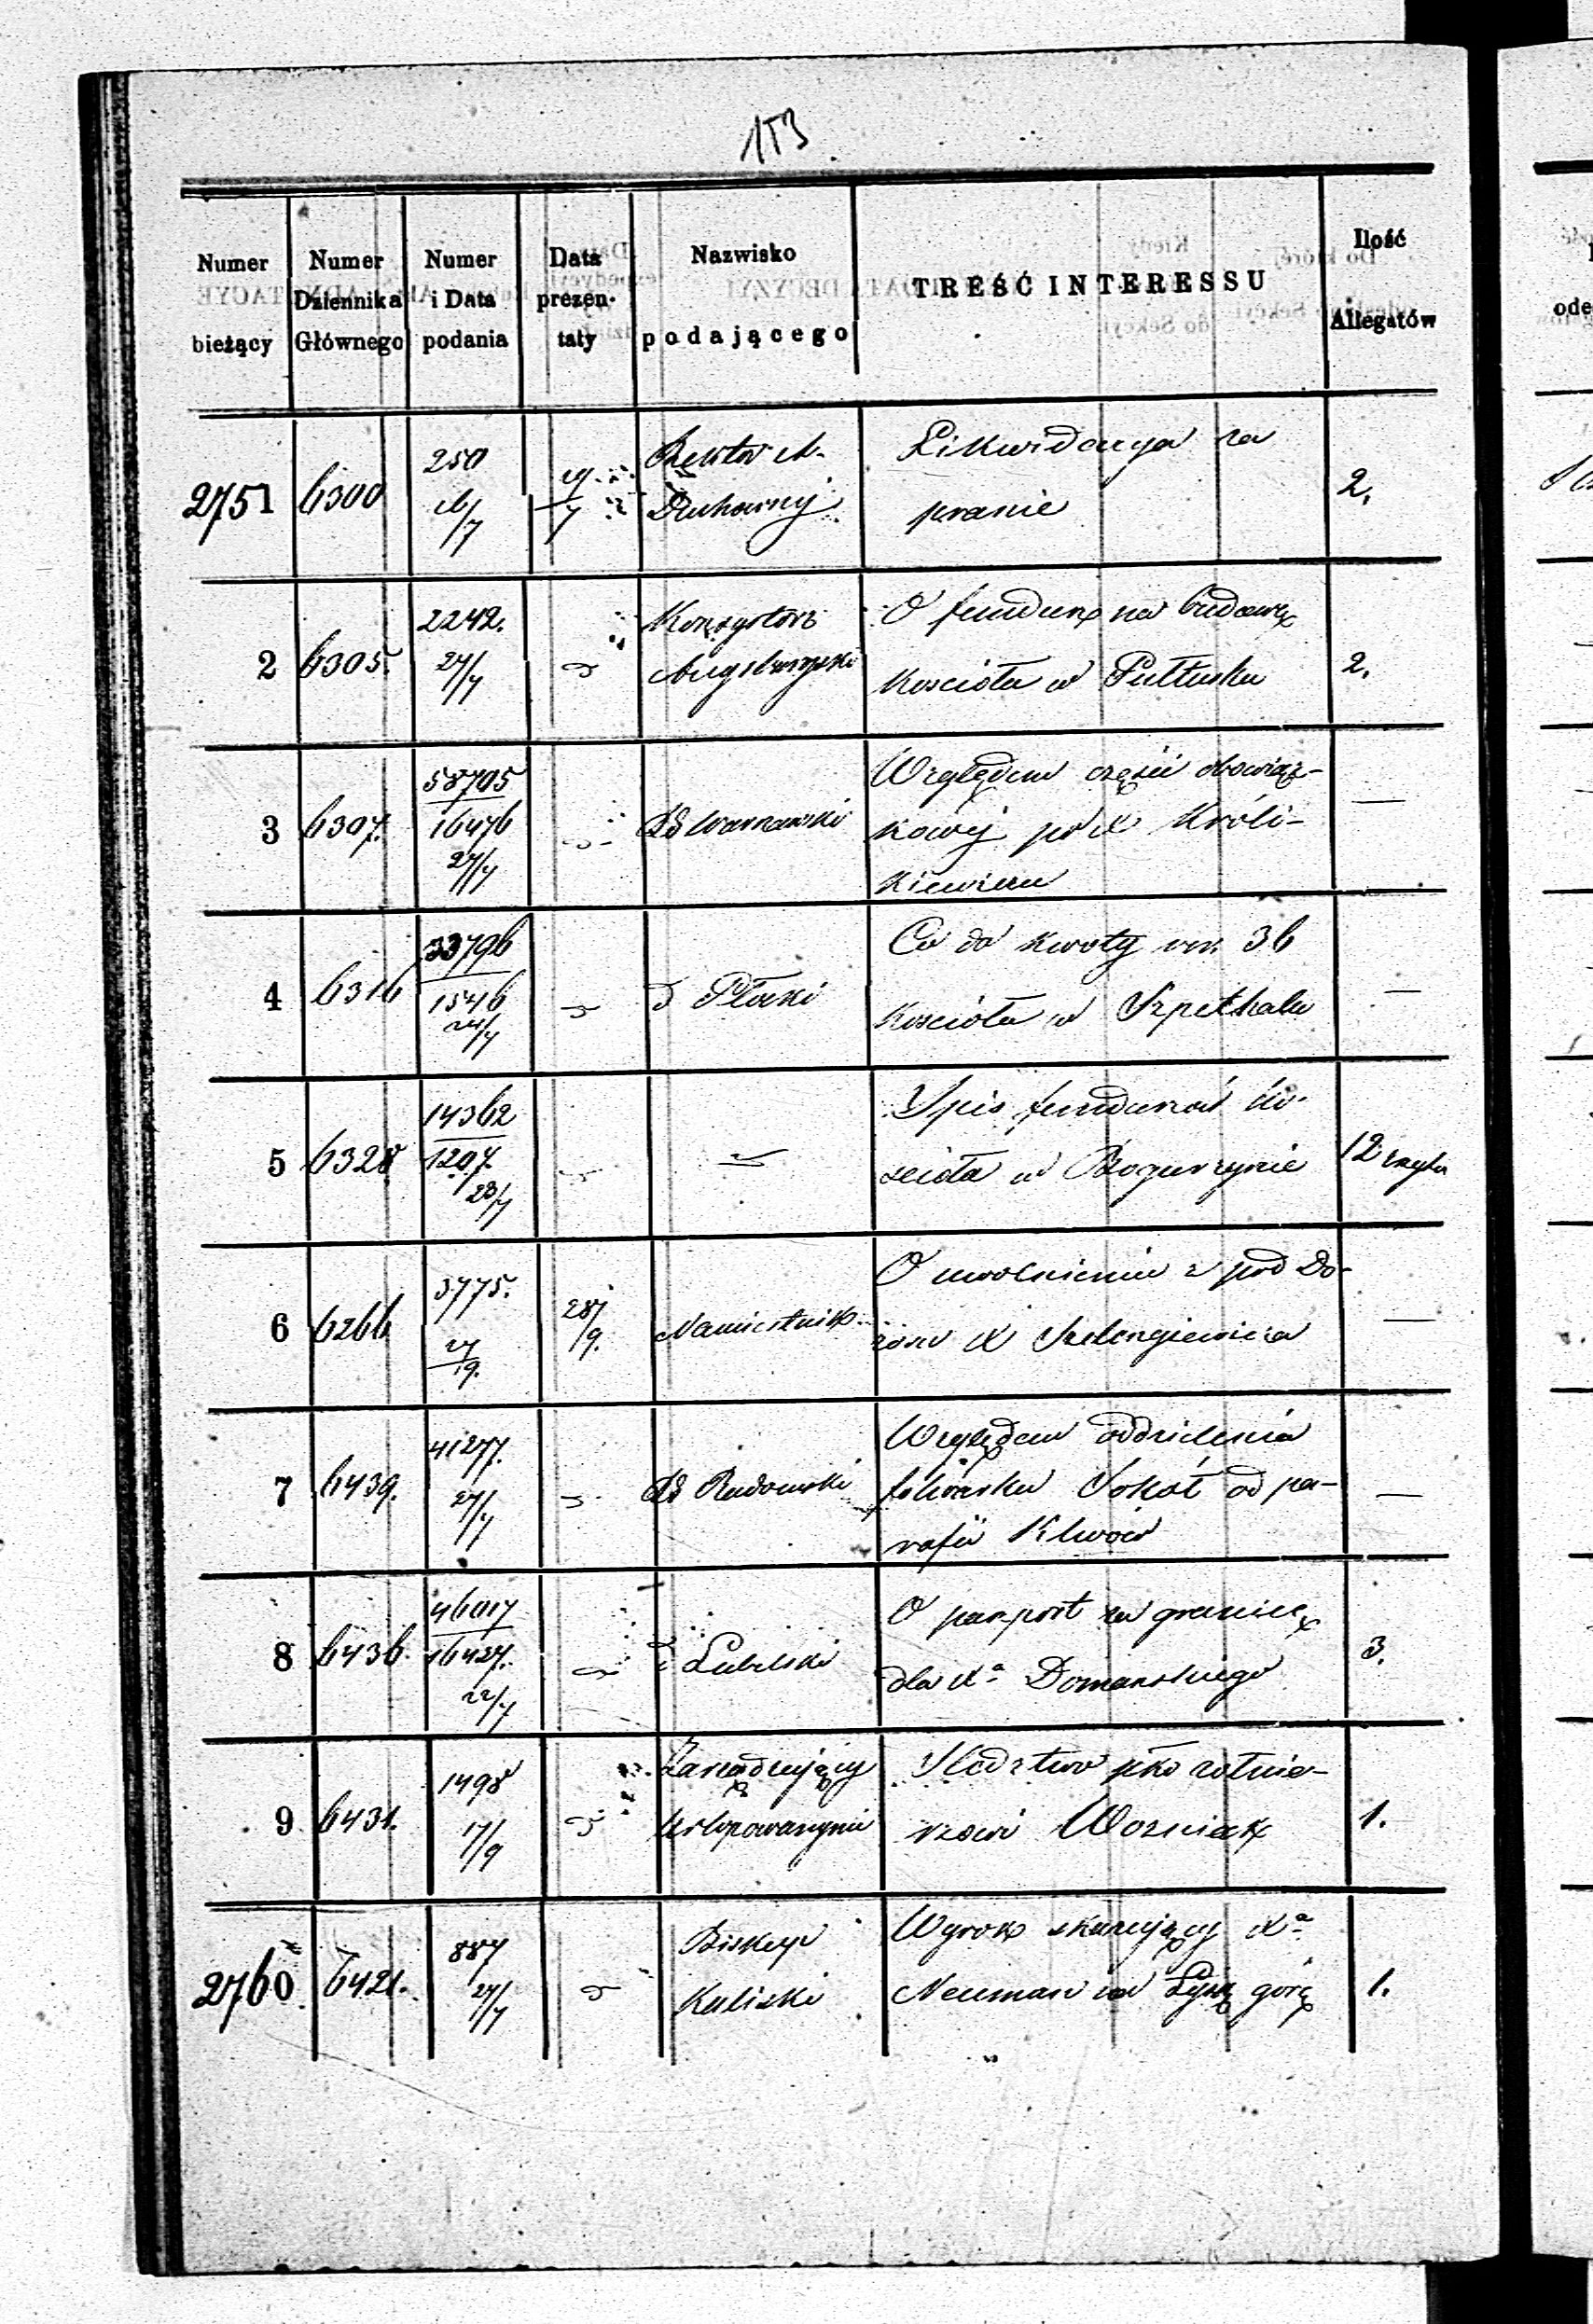 153
Numer bieżący
Numer Dziennika Głównego
Numer i Data podania
Data prezentaty
Nazwisko podającego
TREŚĆ INTERESSU
Ilość Allegatów
2751 6300 250
Duchowny
Likwidacya za
pranie
2.
2 6305. 2242. 27/7
Konsystorz
Augsburgski
O fundusz na budowę
kościoła w Pułtusku
2.
3 6307. 58705
16476
27/7
Warszawski
Względem części obowiąz-
kowéj po X Króli-
kiewiczu
—
4 6316 33796
1546
24/7
d Płocki
Co do kwoty rsr. 36
kościoła w Szpetkalu
—
5 6328 14362
1207.
23/7
Spis funduszów ko-
scioła w Bogurzynie
12
6 6266 3775.
27/9.
28/9.
Namiestnik
O uwolnieniu z pod do-
zoru X
—
7 6439. 41277.
27/7
Radomski
Względem oddzielenia
folwarku Sokół od pa-
rafii Klwów
—
8 6436. 46017
16427.
22/7
d Lubelski
O paszport za granicę
dla Xa Domanskiego
3.
9 6431. 1498
17/9
Zarządzający
Urlopowanymi
Sledztwo pko żołnie-
rzowi Wozniak
1.
2760 6421. 887
27/7
Biskup
Kaliski
Wyrok skazujący Xa
Neuman na Łysą górę
1.